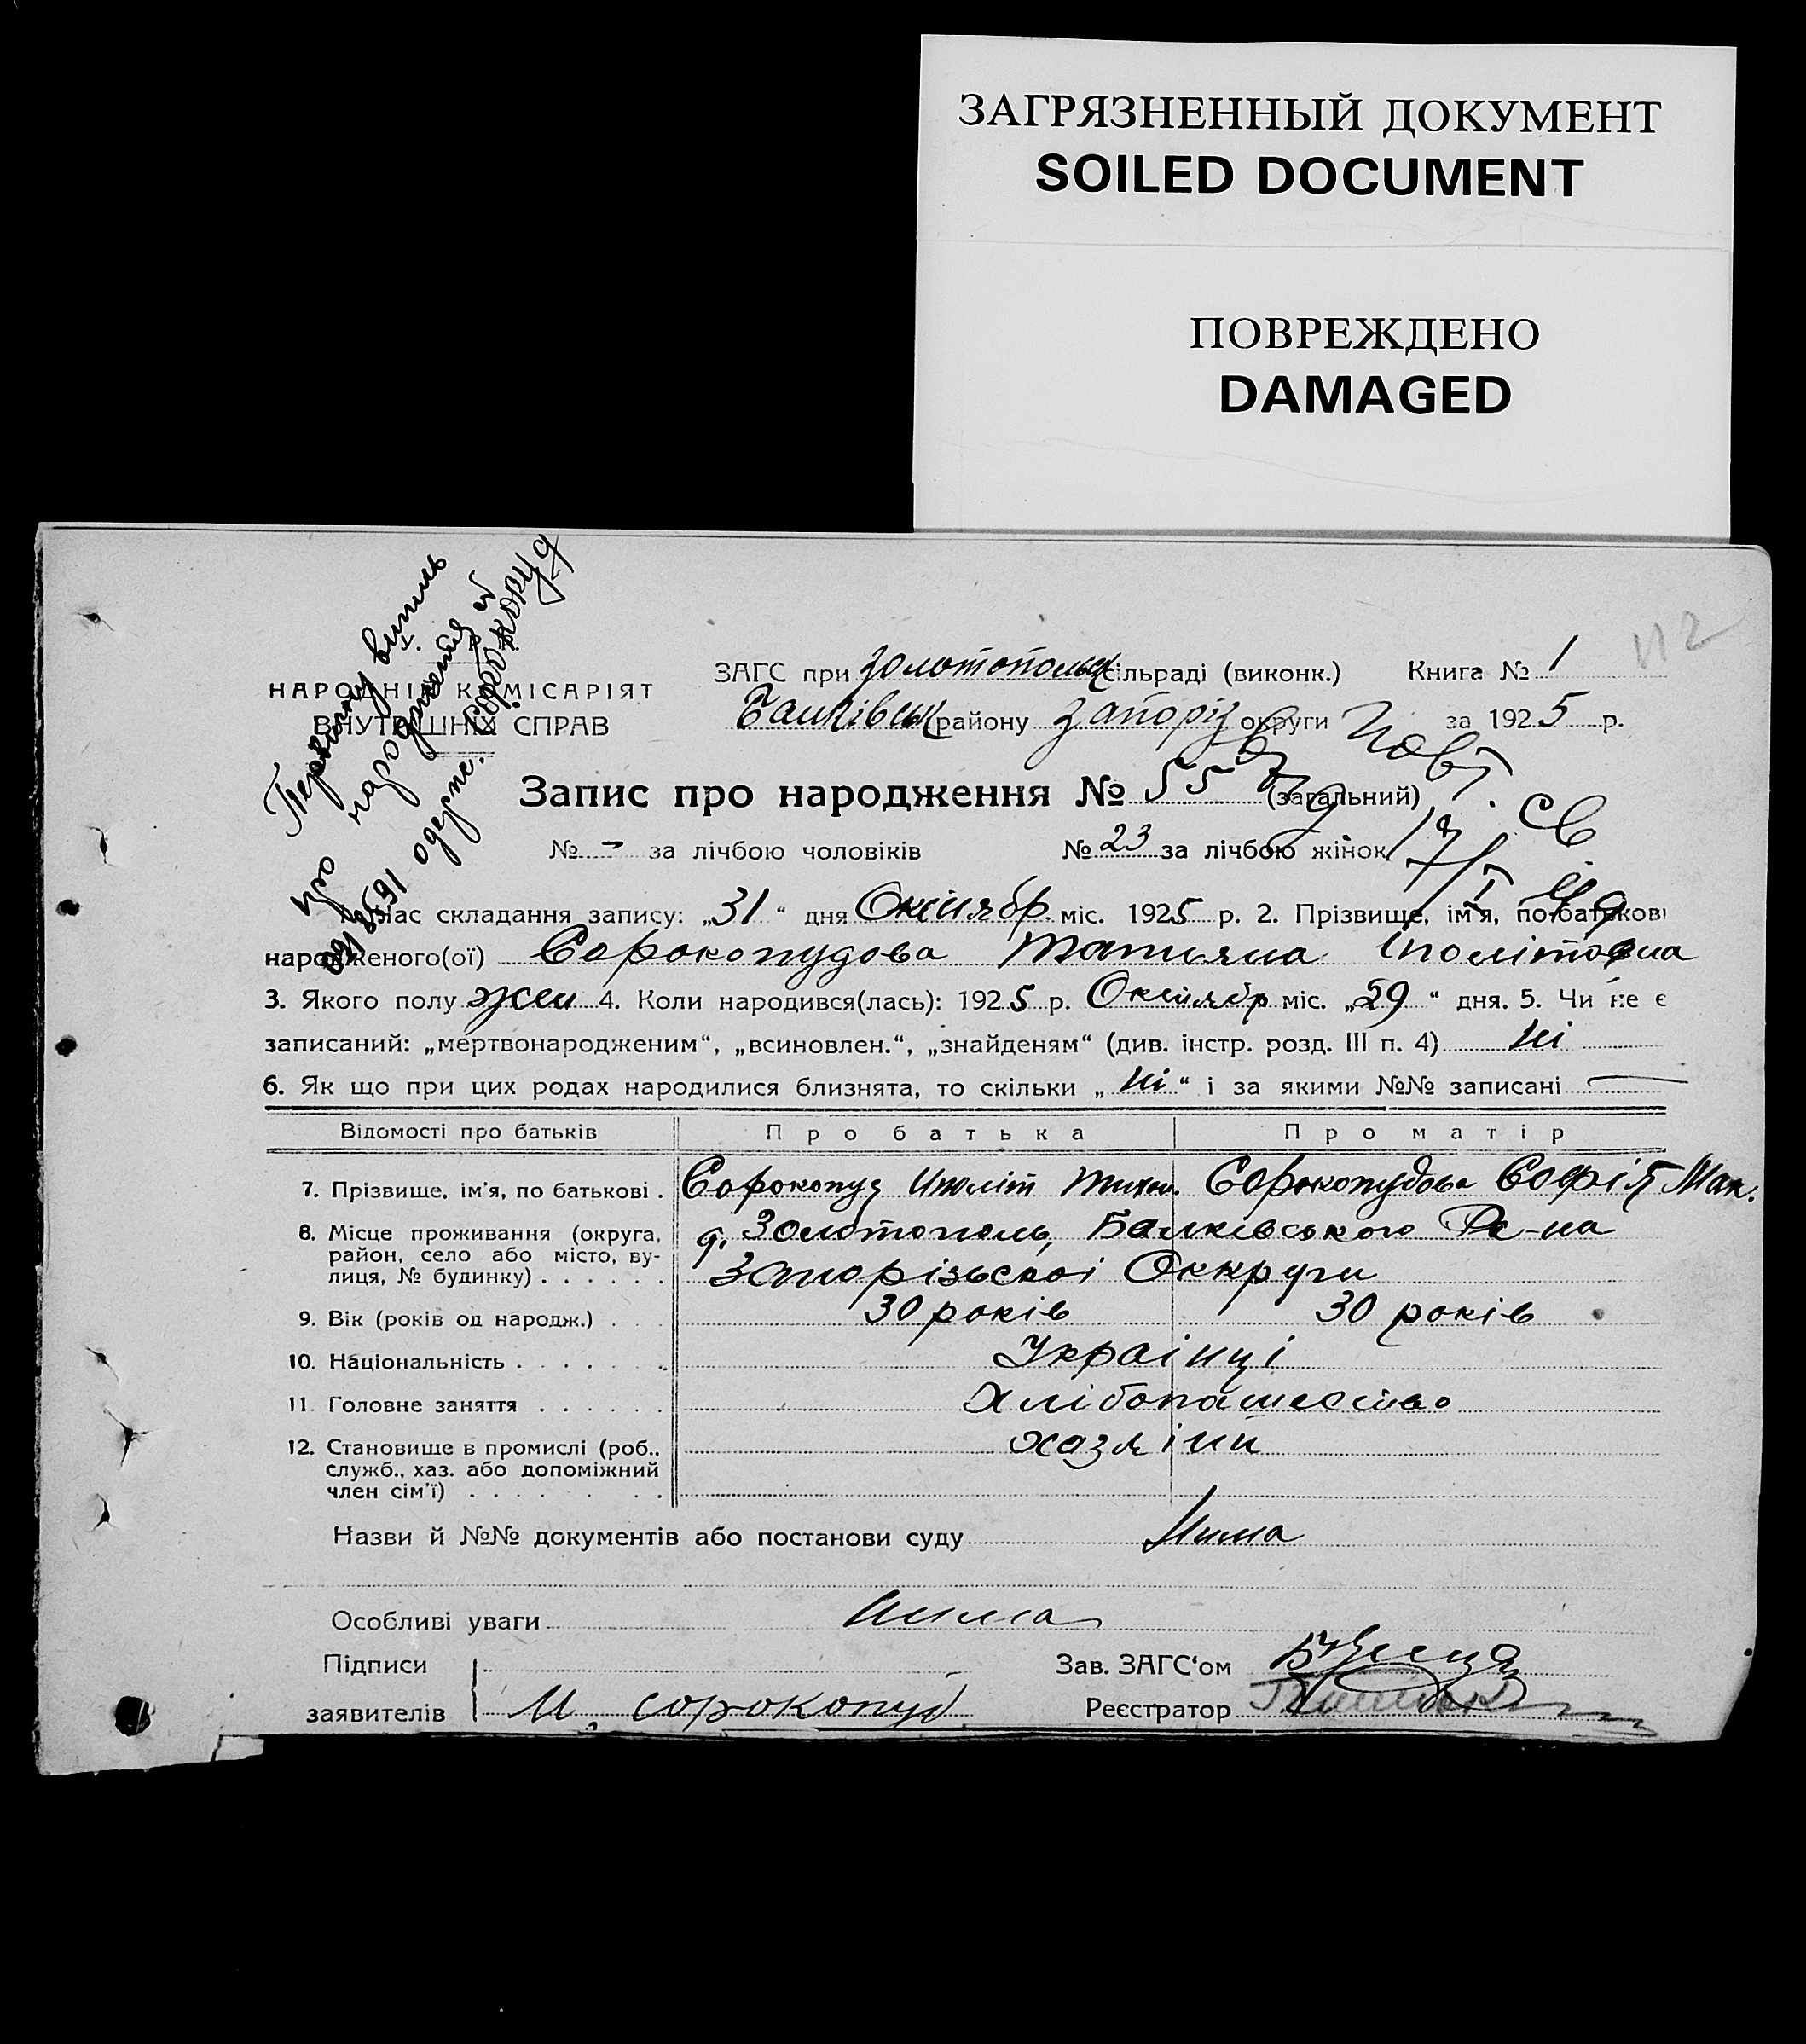 ЗАГРЯЗНЕННЫЙ ДОКУМЕНТ
SOILED DOCUMENT
ПОВРЕЖДЕНО
DAMAGED
112
Первичну випись
про народження
одержав Сорокопуд
НАРОДНІЙ КОМІСАРІЯТ
ВНУТРІШНІХ СПРАВ
ЗАГС при Золотопольск сільраді (виконк.) Книга № 1
Балківськ району Запоріз округи за 1925 р.
Вид. Повт. св
17/I
Запис про народження № 55 (загальний)
№ - за лічбою чоловіків № 23 за лічбою жінок
Час складання запису: „31“ дня Октябр. міс. 1925 р. 2. Прізвище, ім'я, по батькові
народженого(ої) Сорокопудова Татияна Іполітовна
3. Якого полу жен 4. Коли народився(лась): 1925 р. Октябр міс. „29“ дня. 5. Чи не є
записаний: „мертвонародженим“, „всиновлен.“, „знайденям“ (див. інстр. розд. III п. 4) ні
6. Як що при цих родах народилися близнята, то скільки „ні“ і за якими №№ записані —
Відомості про батьків Про батька Про матір
7. Прізвище, ім'я, по батькові . Сорокопуд Иполіт Тихон. Сорокопудова Софія Мак.
8. Місце проживання (округа, район, село або місто, вулиця, № будинку) . . . . . . д. Золотополь, Балківського Ра-на
Запорізськоі Оккруги
9. Вік (років од народж.) . . . 30 років 30 років
10. Національність . . . . . . . Украінці
11. Головне заняття . . . . . . Хлібопашество
12. Становище в промислі (роб., служб., хаз. або допоміжний член сім'ї) . . . . . . . хазяіни
Назви й №№ документів або постанови суду Нима
Особливі уваги нима
Підписи
заявителів И. Сорокопуд
Зав. ЗАГС‘ом
Реєстратор